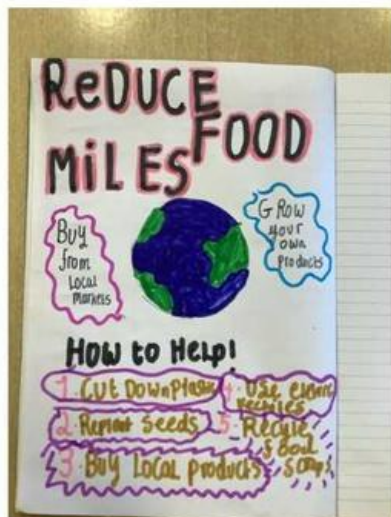 ReDUCE
FOOD
MiLES
Buy
from
Local
Markets
GRow
your
own
Products
How to Help!
1. Cut Down Plastic
2. Replant Seeds
3. Buy Local products
4. Use
5. Recycle
food
scraps